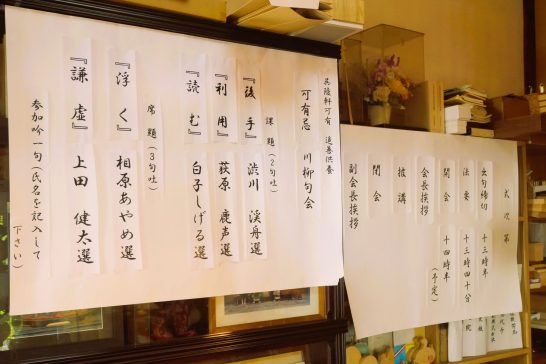 呉陵軒可有 追善供養
可有忌 川柳句会
課題(2句吐)
『後手』 渋川 渓舟選
『利用』 荻原 鹿声選
『読む』 白子しげる選
席題(3句吐)
『浮く』 相原あやめ選
『謙虚』 上田 健太選
参加吟一句(氏名を記入して
下さい)
式次第
出句締切 十三時半
法要 十三時四十分
開会 十四時半
(予定)
会長挨拶
披講
閉会
副会長挨拶